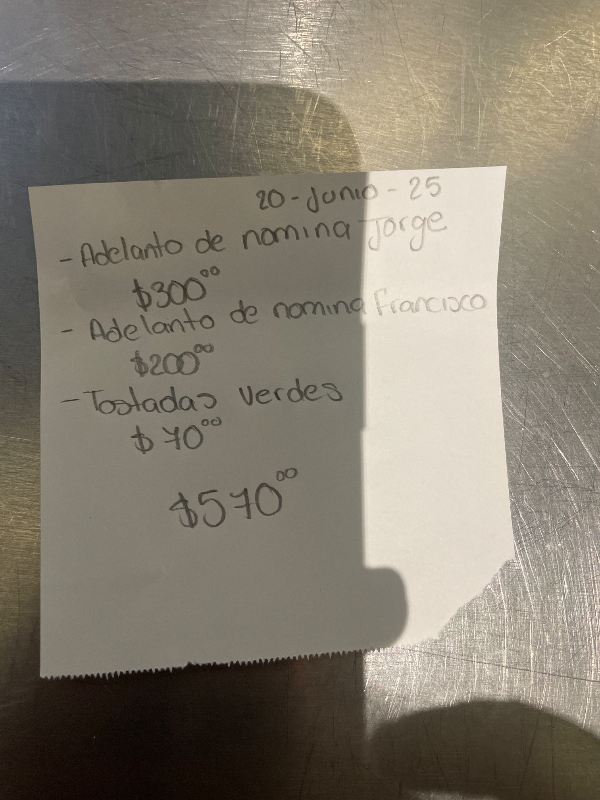 20-Junio-25
- Adelanto de nomina Jorge
$300⁰⁰
- Adelanto de nomina Francisco
$200⁰⁰
- Tostadas verdes
$70⁰⁰
$570⁰⁰